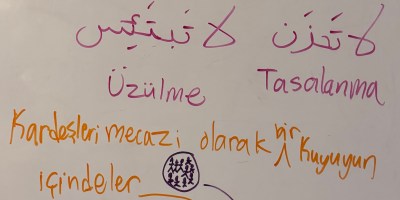 لا تَحْزَن لا تَبْتَئِس
Üzülme Tasalanma
Kardeşleri mecazi olarak bir Kuyuyun
içindeler